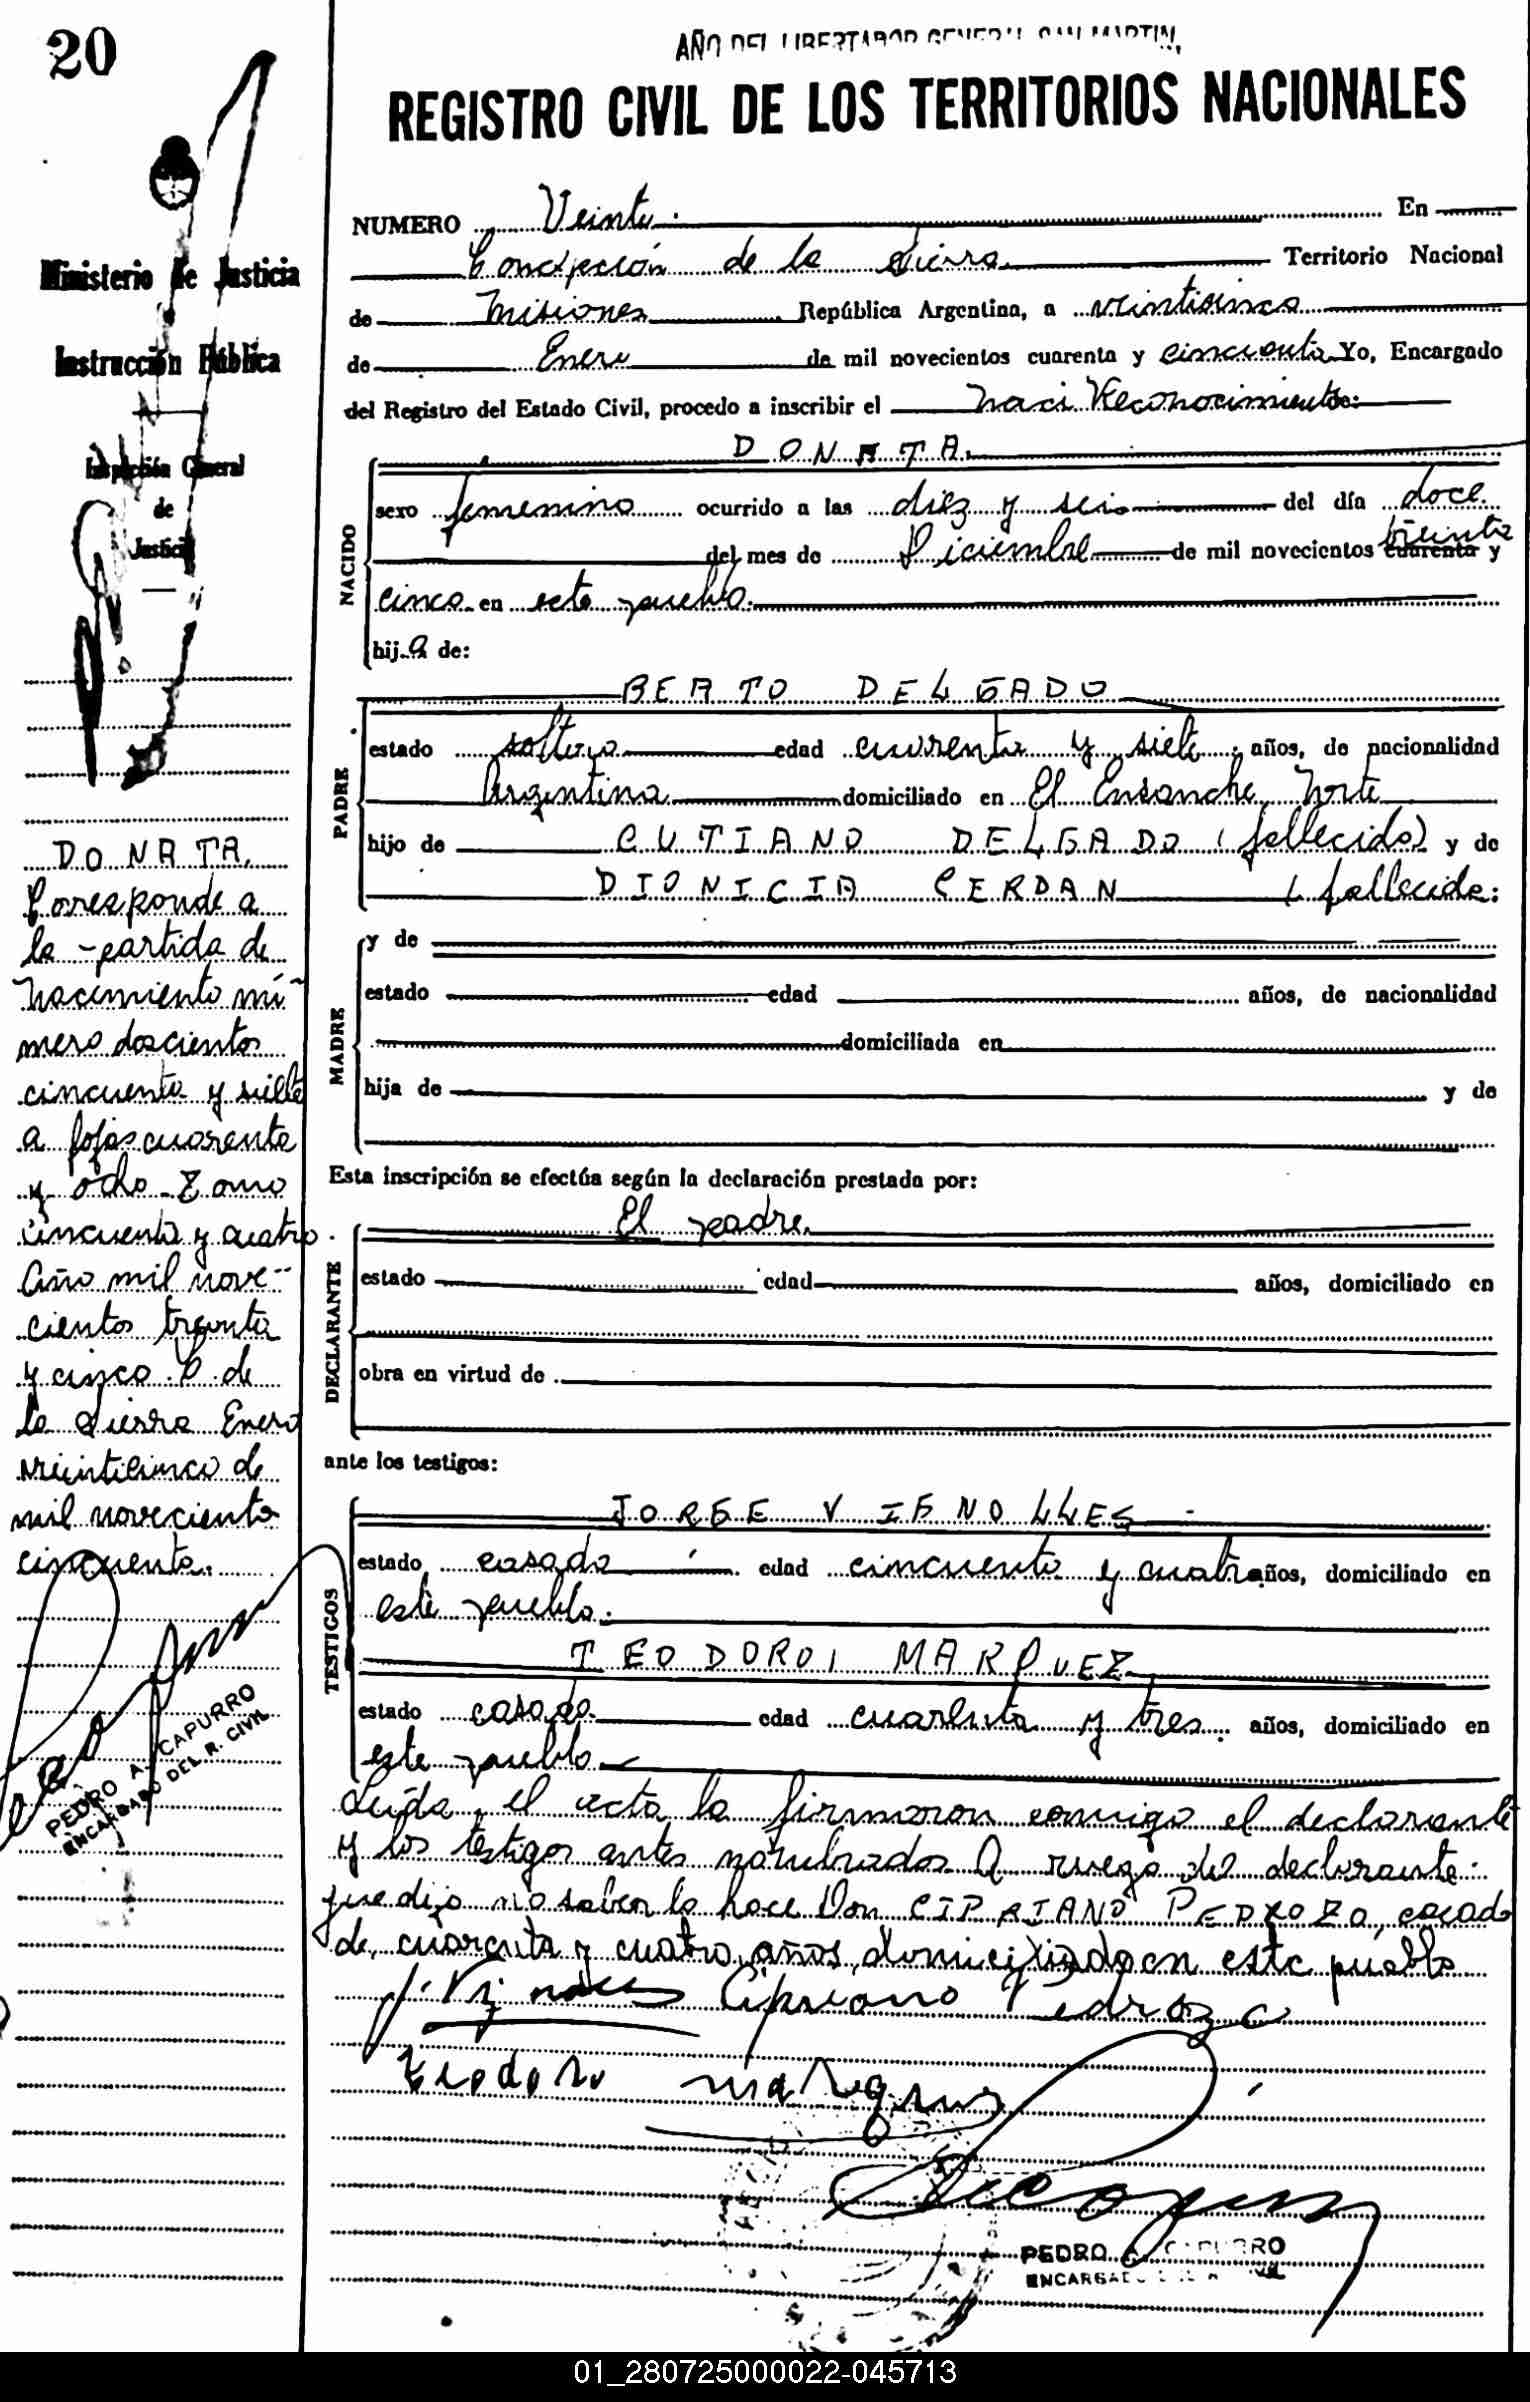 20
AÑO DEL LIBERTADOR GENERAL SAN MARTIN,
REGISTRO CIVIL DE LOS TERRITORIOS NACIONALES
Ministerio de Justicia
Instrucción Pública
Inspección General
de
Justicia
NUMERO Veinte. En
Concepción de la Sierra Territorio Nacional
de Misiones República Argentina, a veinticinco
de Enero de mil novecientos cuarenta y cincuenta Yo, Encargado
del Registro del Estado Civil, procedo a inscribir el naci Reconocimiento:
NACIDO
DONATA.
sexo femenino ocurrido a las diez y seis del día doce
del mes de Diciembre de mil novecientos cuarenta treinta y
cinco en este pueblo.
hija de:
PADRE
BEATO DELGADO
estado soltero edad cuarenta y siete años, de nacionalidad
Argentina domiciliado en El Ensanche Norte
hijo de CUTIANO DELGADO (fallecido) y de
DIONICIA CERDAN (fallecida:
MADRE
y de
estado edad años, de nacionalidad
domiciliada en
hija de y de
Esta inscripción se efectúa según la declaración prestada por:
DECLARANTE
El padre.
estado edad años, domiciliado en
obra en virtud de
ante los testigos:
TESTIGOS
JORGE VIGNOLLES
estado casado edad cincuenta y cuatro años, domiciliado en
este pueblo.
TEODORO MARQUEZ
estado casado edad cuarenta y tres. años, domiciliado en
este pueblo.
Leída, el acta la firmaron conmigo el declarante
y los testigos antes nombrados A ruego del declarante
que dijo no saber lo hace Don CIPRIANO PEDROZO, casado
de cuarenta y cuatro años, domiciliado en este pueblo
Cipriano Pedrozo
Teodoro Marquez
PEDRO A. CAPURRO
ENCARGADO DEL R. CIVIL
DONATA.
Corresponde a
la partida de
Nacimiento nú-
mero doscientos
cincuenta y siete
a fojas cuarenta
y ocho Tomo
cincuenta y cuatro
Año mil nove-
cientos treinta
y cinco. C. de
la Sierra Enero
veinticinco de
mil novecientos
cincuenta.
PEDRO A. CAPURRO
ENCARGADO DEL R. CIVIL
01_280725000022-045713